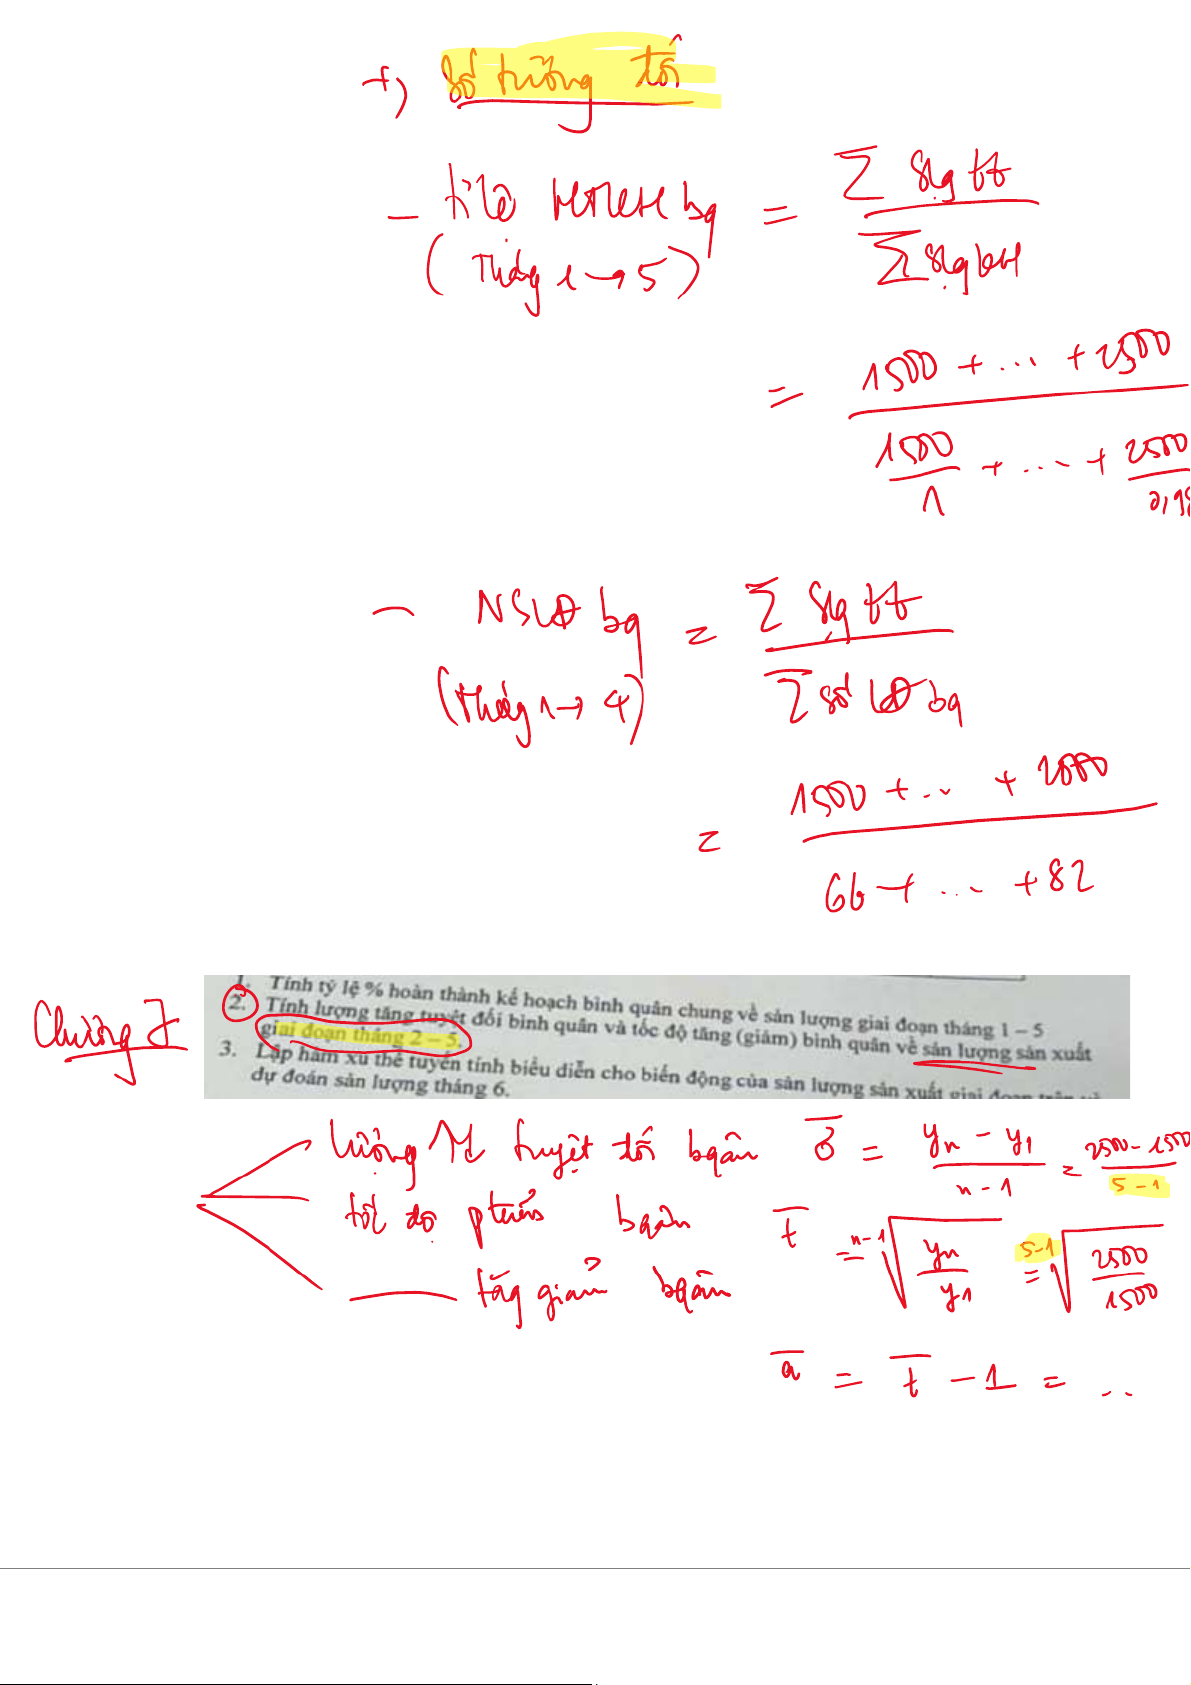 +) Số tương đối
- tỉ lệ HTKH bq = Σ slg tt / Σ slg KH
(Tháng 1 → 5)
= 1500 + ... + 2500 / 1500/1 + ... + 2500/0,98
- NSLĐ bq = Σ slg tt / Σ số LĐ bq
(tháng 1 → 4)
= 1500 + ... + 2000 / 66 + ... + 82
1. Tính tỷ lệ % hoàn thành kế hoạch bình quân chung về sản lượng giai đoạn tháng 1 – 5
Chương 7
2. Tính lượng tăng tuyệt đối bình quân và tốc độ tăng (giảm) bình quân về sản lượng sản xuất
giai đoạn tháng 2 – 5.
3. Lập hàm xu thế tuyến tính biểu diễn cho biến động của sản lượng sản xuất giai đoạn trên và
dự đoán sản lượng tháng 6.
lượng tuyệt đối bquân δ̄ = yn - y1 / n - 1 = 2500 - 1500 / 5 - 1
tốc độ ptriển bquân t̄ = n-1√(yn / y1) = 5-1√(2500 / 1500)
tăg giảm bquân
ā = t̄ - 1 = ..